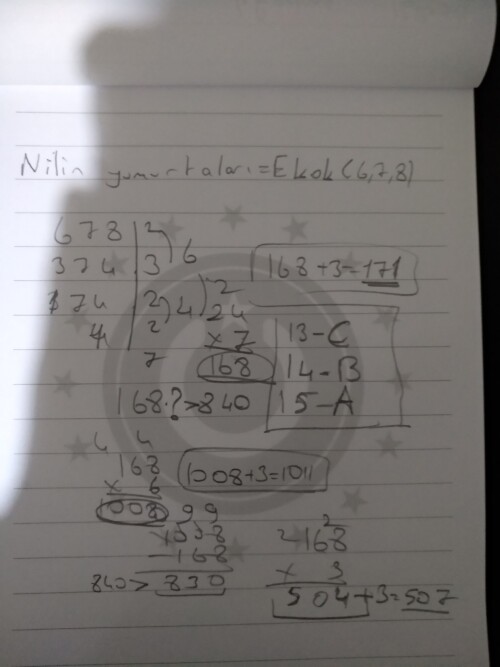 Nilin yumurtaları=Ekok(6,7,8)
6 7 8 | 2
3 7 4 | 3 ) 6
1 7 4 | 2 ) 4 ) 2
2 24
7 x7
168
168+3=171
13-C
14-B
15-A
168.?>840
4 4
168
x 6
1008
1008+3=1011
99
1008
-168
840> 830
2
168
x 3
504+3=507